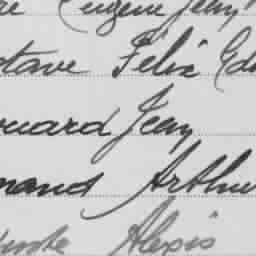 re Eugène Jean
stave Félix Edm
ouard Jean
mand Arthu
Alexis